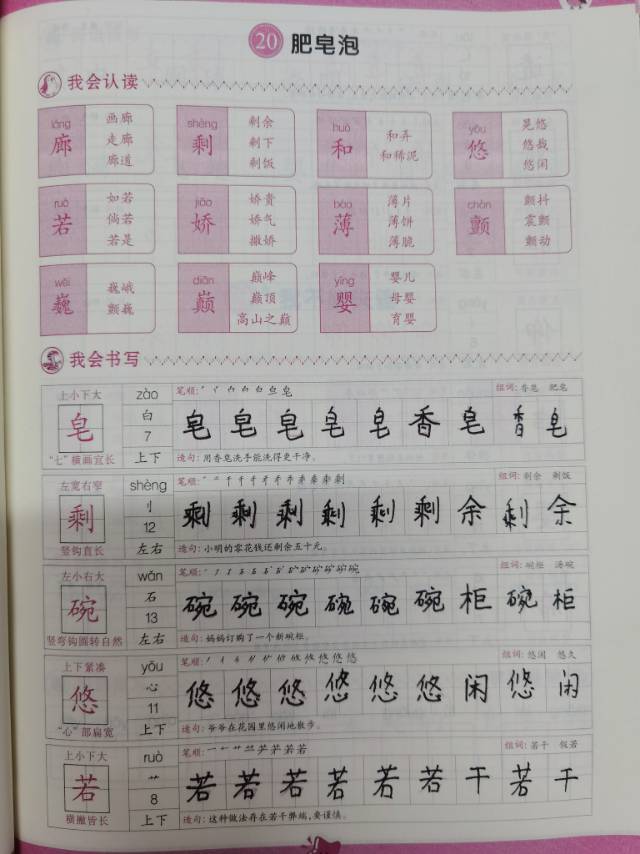 20 肥皂泡
我会认读
láng shèng huò yōu
廊 画廊 走廊 廊道 剩 剩余 剩下 剩饭 和 和弄 和稀泥 悠 晃悠 悠哉 悠闲
ruò jiāo báo chàn
若 如若 倘若 若是 娇 娇贵 娇气 撒娇 薄 薄片 薄饼 薄脆 颤 颤抖 震颤 颤动
wēi diān yīng
巍 巍峨 颤巍 巅 巅峰 巅顶 高山之巅 婴 婴儿 母婴 育婴
我会书写
上小下大 zào 笔顺: 组词:香皂 肥皂
皂 白 7 皂 皂 皂 皂 皂 香 皂 香 皂
“七”横画宜长 上下 造句:用香皂洗手能洗得更干净。
左宽右窄 shèng 笔顺: 组词:剩余 剩饭
剩 刂 12 剩 剩 剩 剩 剩 剩 余 剩 余
竖钩直长 左右 造句:小明的零花钱还剩余五十元。
左小右大 wǎn 笔顺: 组词:碗柜 汤碗
碗 石 13 碗 碗 碗 碗 碗 碗 柜 碗 柜
竖弯钩圆转自然 左右 造句:妈妈订购了一个新碗柜。
上下紧凑 yōu 笔顺: 组词:悠闲 悠久
悠 心 11 悠 悠 悠 悠 悠 悠 闲 悠 闲
“心”部扁宽 上下 造句:爷爷在花园里悠闲地散步。
上小下大 ruò 笔顺: 组词:若干 假若
若 艹 8 若 若 若 若 若 若 干 若 干
横撇皆长 上下 造句:这种做法存在若干弊端,要谨慎。